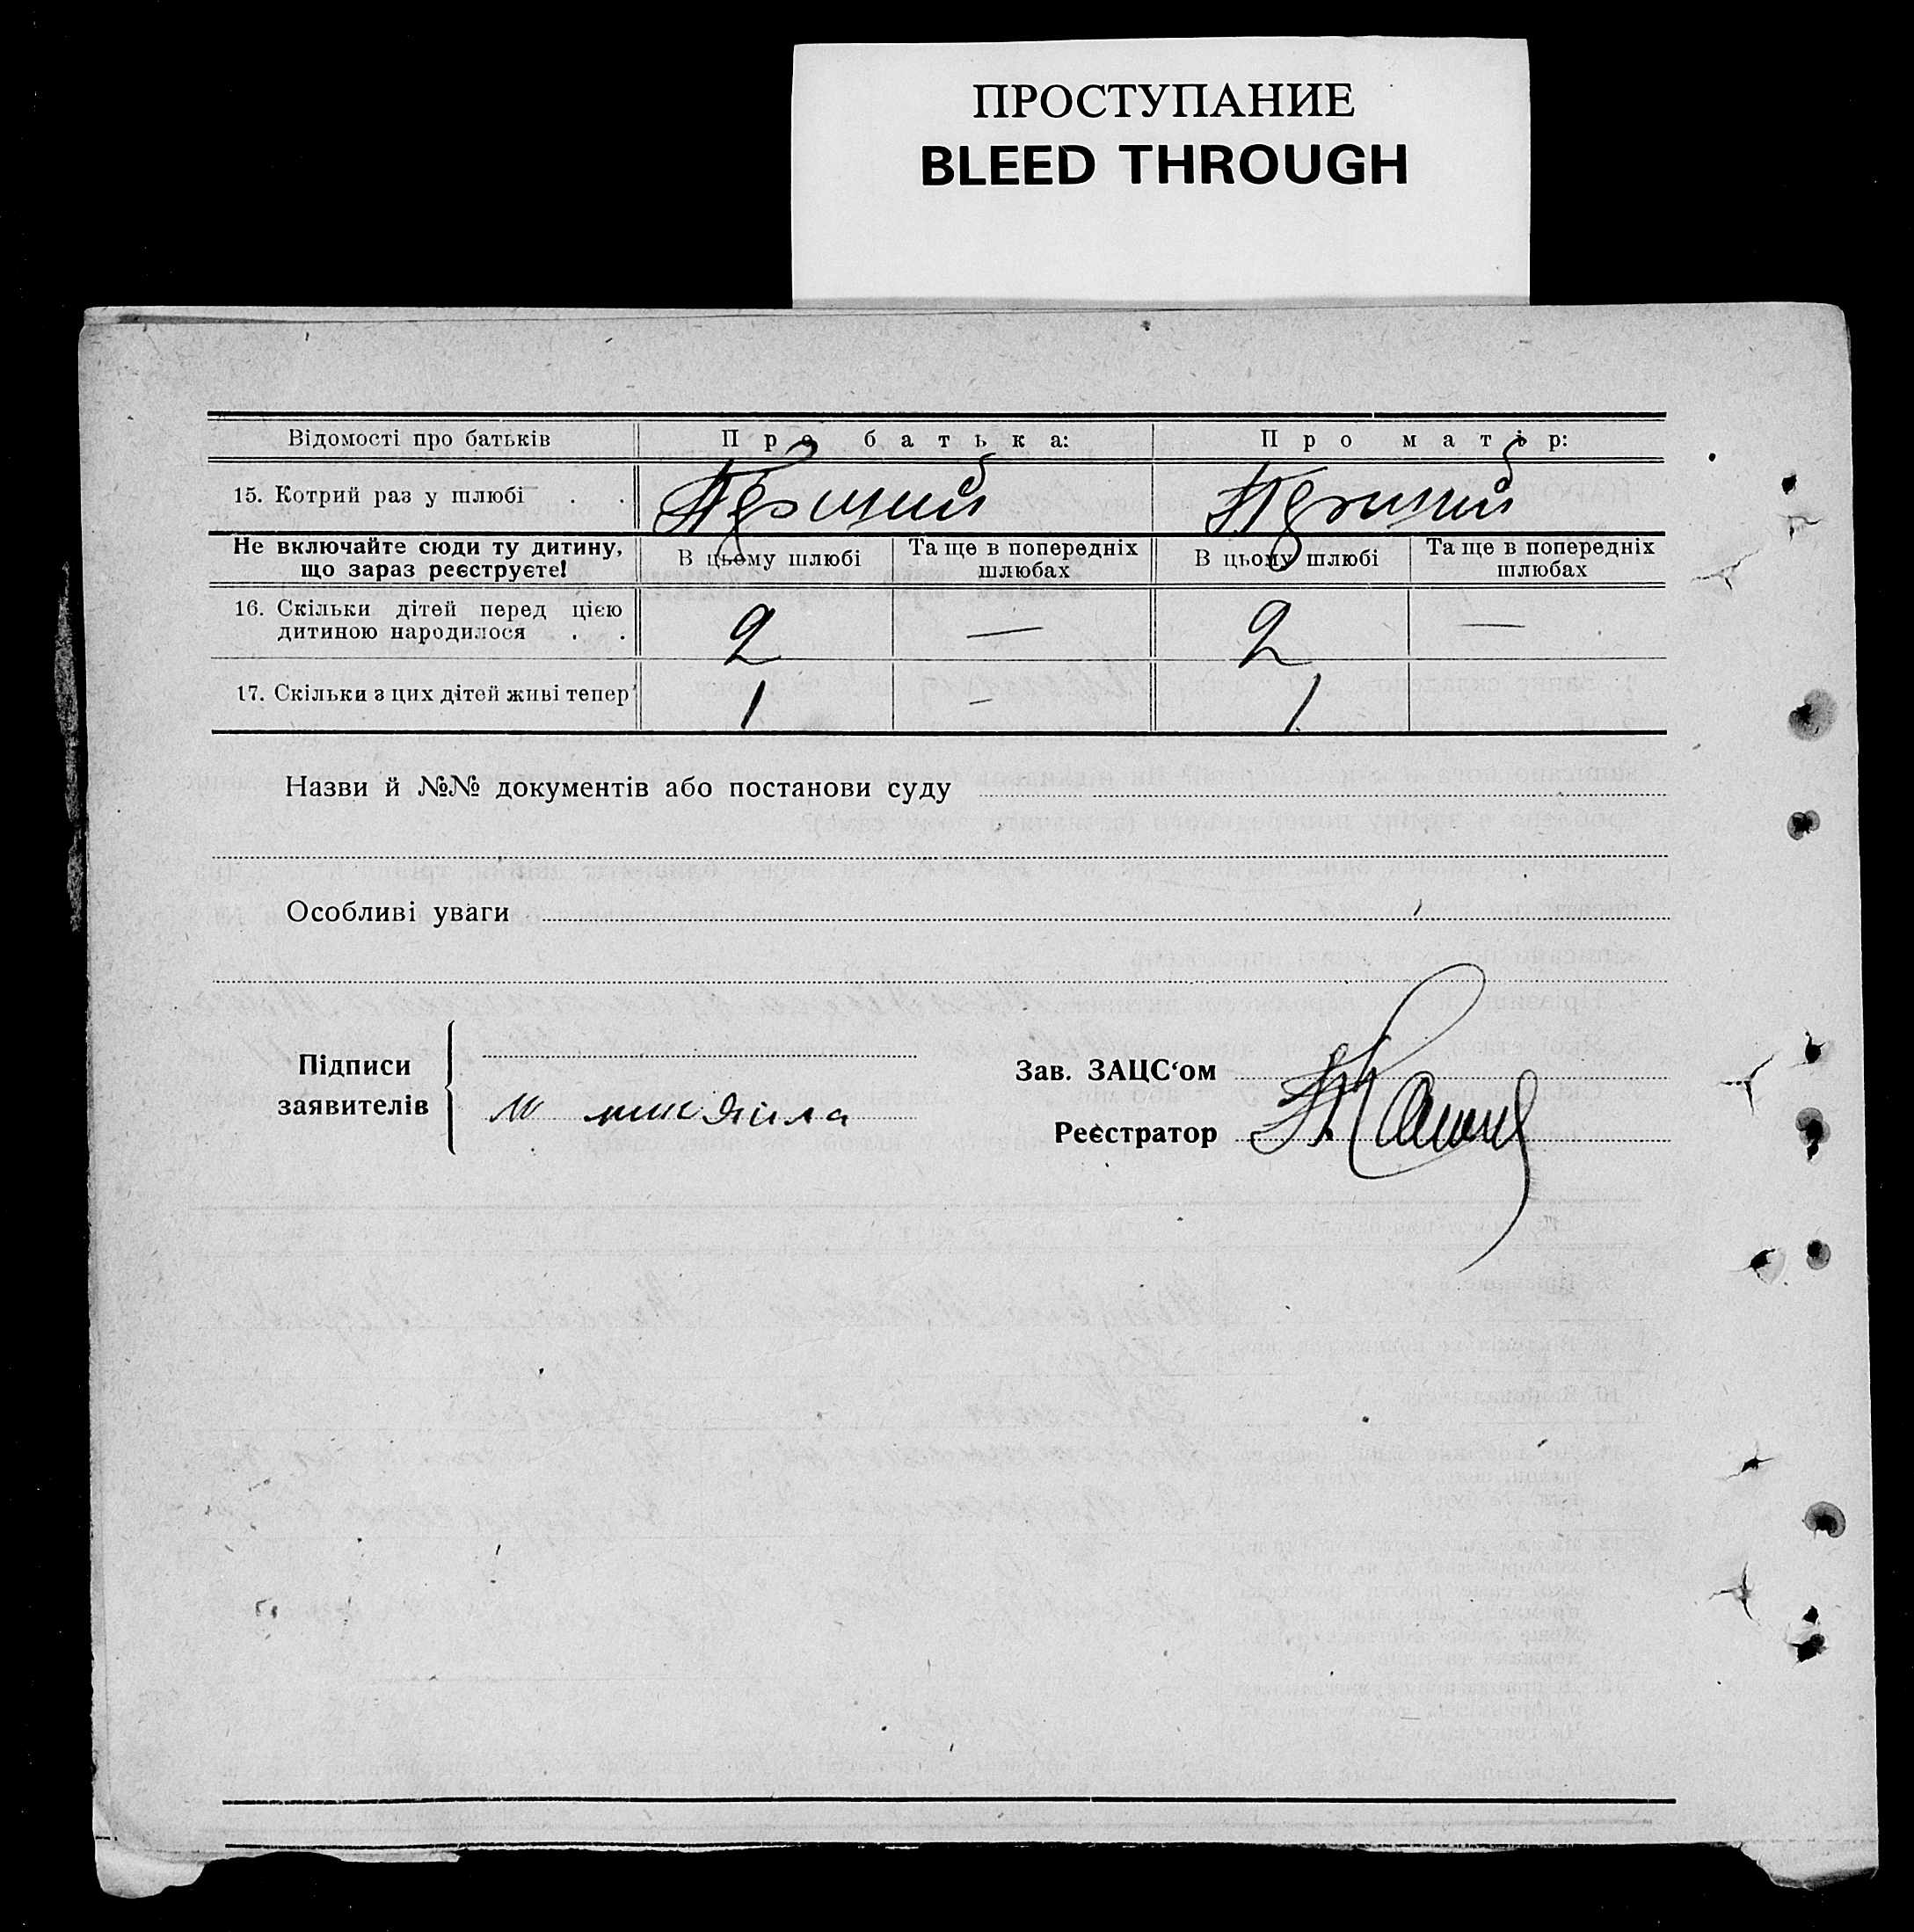 ПРОСТУПАНИЕ
BLEED THROUGH
Відомості про батьків Про батька: Про матір:
15. Котрий раз у шлюбі . . Перший Перший
Не включайте сюди ту дитину, що зараз реєструєте! В цьому шлюбі Та ще в попередніх шлюбах В цьому шлюбі Та ще в попередніх шлюбах
16. Скільки дітей перед цією
дитиною народилося . . 2 — 2 —
17. Скільки з цих дітей живі тепер 1 – 1
Назви й №№ документів або постанови суду
Особливі уваги
Підписи
заявителів
Зав. ЗАЦС‘ом
Реєстратор